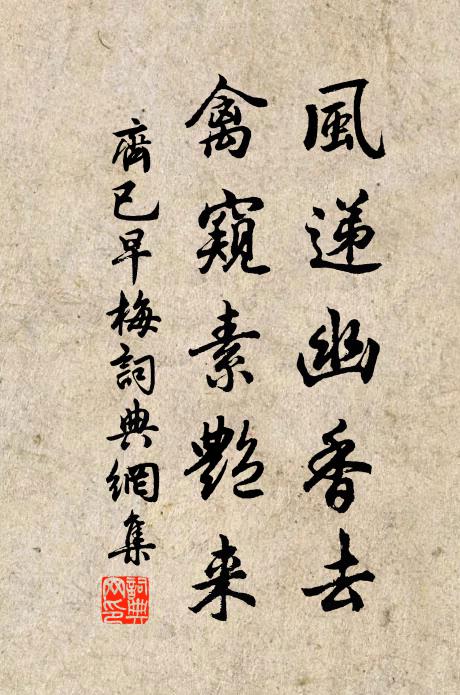 風递幽香去
禽窺素艷来
齊己早梅詞典網集
詞典网印